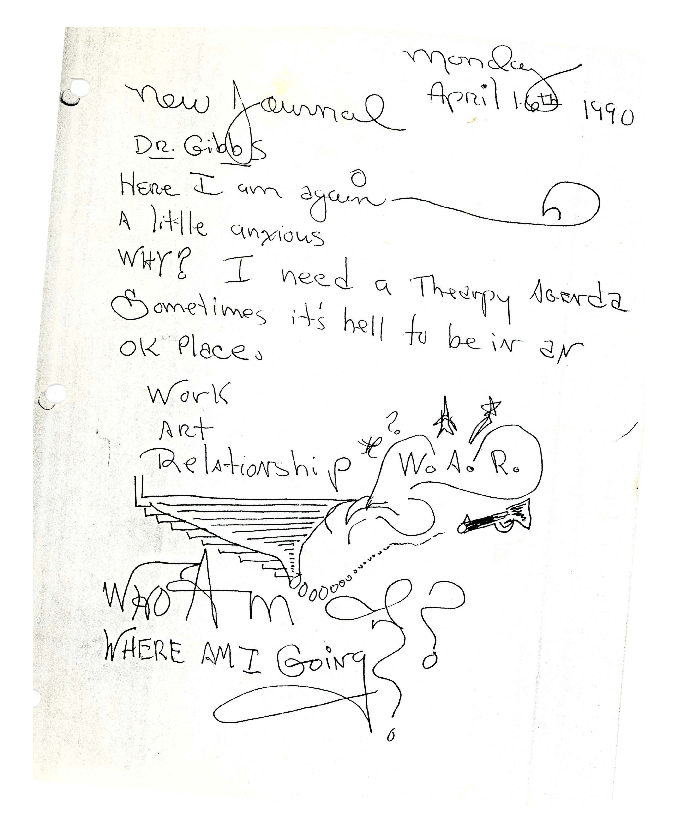 Monday
April 16th 1990
New Journal
Dr. Gibbs
Here I am again
A little anxious
WHY? I need a Thearpy Agenda
Sometimes it's hell to be in an
OK Place.
Work
ART
Relationship *? W. A. R.
WHO Am I?
WHERE AM I Going?